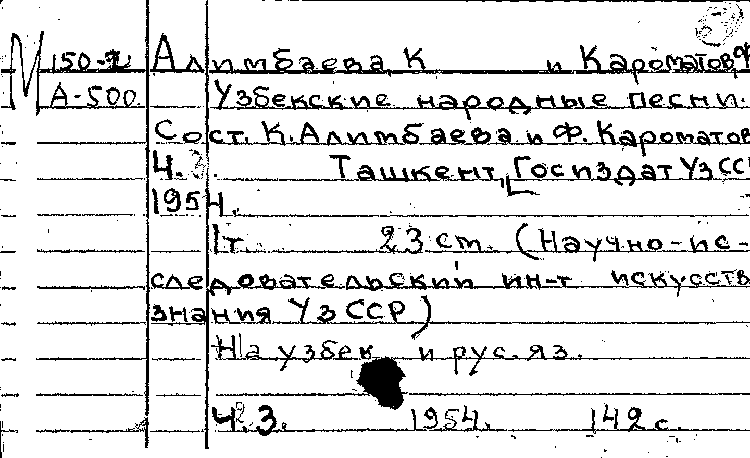 М 150-2 Алимбаева, К и Кароматов, Ф
А-500 Узбекские народные песни.
Сост. К. Алимбаева и Ф. Кароматов
Ч. 3. Ташкент, Госиздат УзССР
1954.
1т. 23 см. (Научно-ис-
следовательский ин-т искусств
знания УзССР)
На узбек и рус. яз.
Ч. 3. 1954. 142 с.